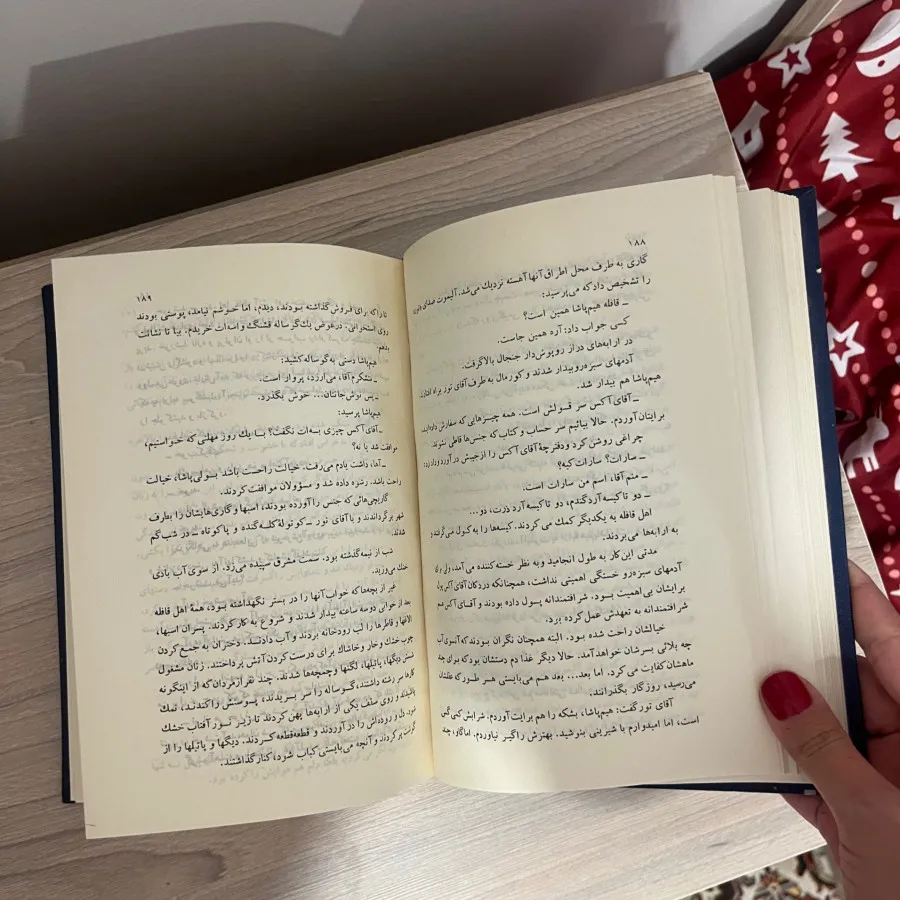 ۱۸۸
گاری به طرف محل اطراق آنها آهسته نزدیك می‌شد. آلیموت صدای
را تشخیص داد که می‌پرسید:
ـ قافله هیم‌پاشا همین است؟
کسی جواب داد: آره همین جاست.
در ارابه‌های دراز روپوش‌دار جنجال بالاگرفت.
آدمهای سبزه‌رو بیدار شدند و کورمال به طرف آقای نور براه افتادند.
هیم‌پاشا هم بیدار شد.
ـ آقای آکس سر قولش است. همه چیزهایی که سفارش داده‌اید،
برایتان آوردم. حالا بیائیم سر حساب و کتاب که جنس‌ها قاطی نشوند.
چراغی روشن کرد و دفترچهٔ آقای آکس را از جیبش در آورد و داد زد:
ـ سارات؟ سارات کیه؟
ـ منم آقا، اسم من سارات است.
ـ دو تا کیسه آردگندم، دو تا کیسه آرد ذرت، دو...
اهل قافله به یکدیگر کمك می‌کردند. کیسه‌ها را به کول می‌گرفتند و
به ارابه‌ها می‌بردند.
مدتی این‌کار به طول انجامید و به نظر خسته‌کننده می‌آمد، ولی برای
آدمهای سبزه‌رو خستگی اهمیتی نداشت، همچنانکه دزدکان آقای آکس
برایشان بی‌اهمیت بود. شرافتمندانه پول داده بودند و آقای آکس هم
شرافتمندانه به تعهدش عمل کرده بود.
خیالشان راحت شده بود. البته همچنان نگران بودند که آنسوی آب
چه بلائی سرشان خواهد آمد. حالا دیگر غذا دم دستشان بود که برای چه
ماهشان کفایت می کرد. اما بعد... بعد هم می‌بایستی هر طور که عقلشان
می‌رسید، روزگار بگذرانند.
آقای نور گفت: هیم‌پاشا، بشکه را هم برایت آوردم. شرابش کمی گس
است، اما امیدوارم با شیرینی بنوشید. بهترش را گیر نیاوردم. اما گاو، چند
۱۸۹
تا را که برای فروش گذاشته بودند، دیدم، اما خوشم نیامد، پوستی بودند
روی استخوانی. درعوض یك گوساله قشنگ واسه‌ات خریدم. بیا تا نشانت
بدهم.
هیم‌پاشا دستی به گوساله کشید:
ـ تشکر آقا، می‌ارزد، پروار است.
ـ پس نوش جانتان... خوش بگذرد.
هیم‌پاشا پرسید:
ـ آقای آکس چیزی به‌ات نگفت؟ با یك روز مهلتی که خواستیم،
موافقت شد یا نه؟
ـ آها، داشت یادم می‌رفت. خیالت راحت باشد بولی‌پاشا، خیالت
راحت باشد. رشوه داده شد و مسؤولان موافقت کردند.
گاریچی‌هائی که جنس را آورده بودند، اسبها و گاری‌هایشان را بطرف
شهر برگرداندند و با آقای نور ـ کوتولهٔ کله‌گنده و پاکوتاه ـ در شب گم
شدند.
شب از نیمه‌گذشته بود. سمت مشرق سپیده می‌زد. از سوی آب بادی
خنك می‌وزید.
غیر از بچه‌ها که خواب آنها را در بستر نگهداشته بود، همهٔ اهل قافله
بعد از خوابی دوسه ساعته بیدار شدند و شروع به کار کردند. پسران اسبها،
الاغها و قاطرها را لب رودخانه بردند و آب دادند. دختران به جمع کردن
چوب خشك و خار و خاشاك برای درست کردن آتش پرداختند. زنان مشغول
شستن دیگها، پاتیلها، لگنها و چمچه‌ها شدند. چند نفر از مردان که از اینگونه
کارها سر رشته داشتند، گوساله را سر بریدند، پوستش را کندند، نمك
پاشیدند و روی سقف یکی از ارابه‌ها پهن کردند تا زیر نور آفتاب خشك
شود. دل و روده‌اش را در آوردند و قطعه‌قطعه کردند. دیگها و پاتیلها را از
گوشت پر کردند و آنچه می‌بایستی کباب شود، کنار گذاشتند.